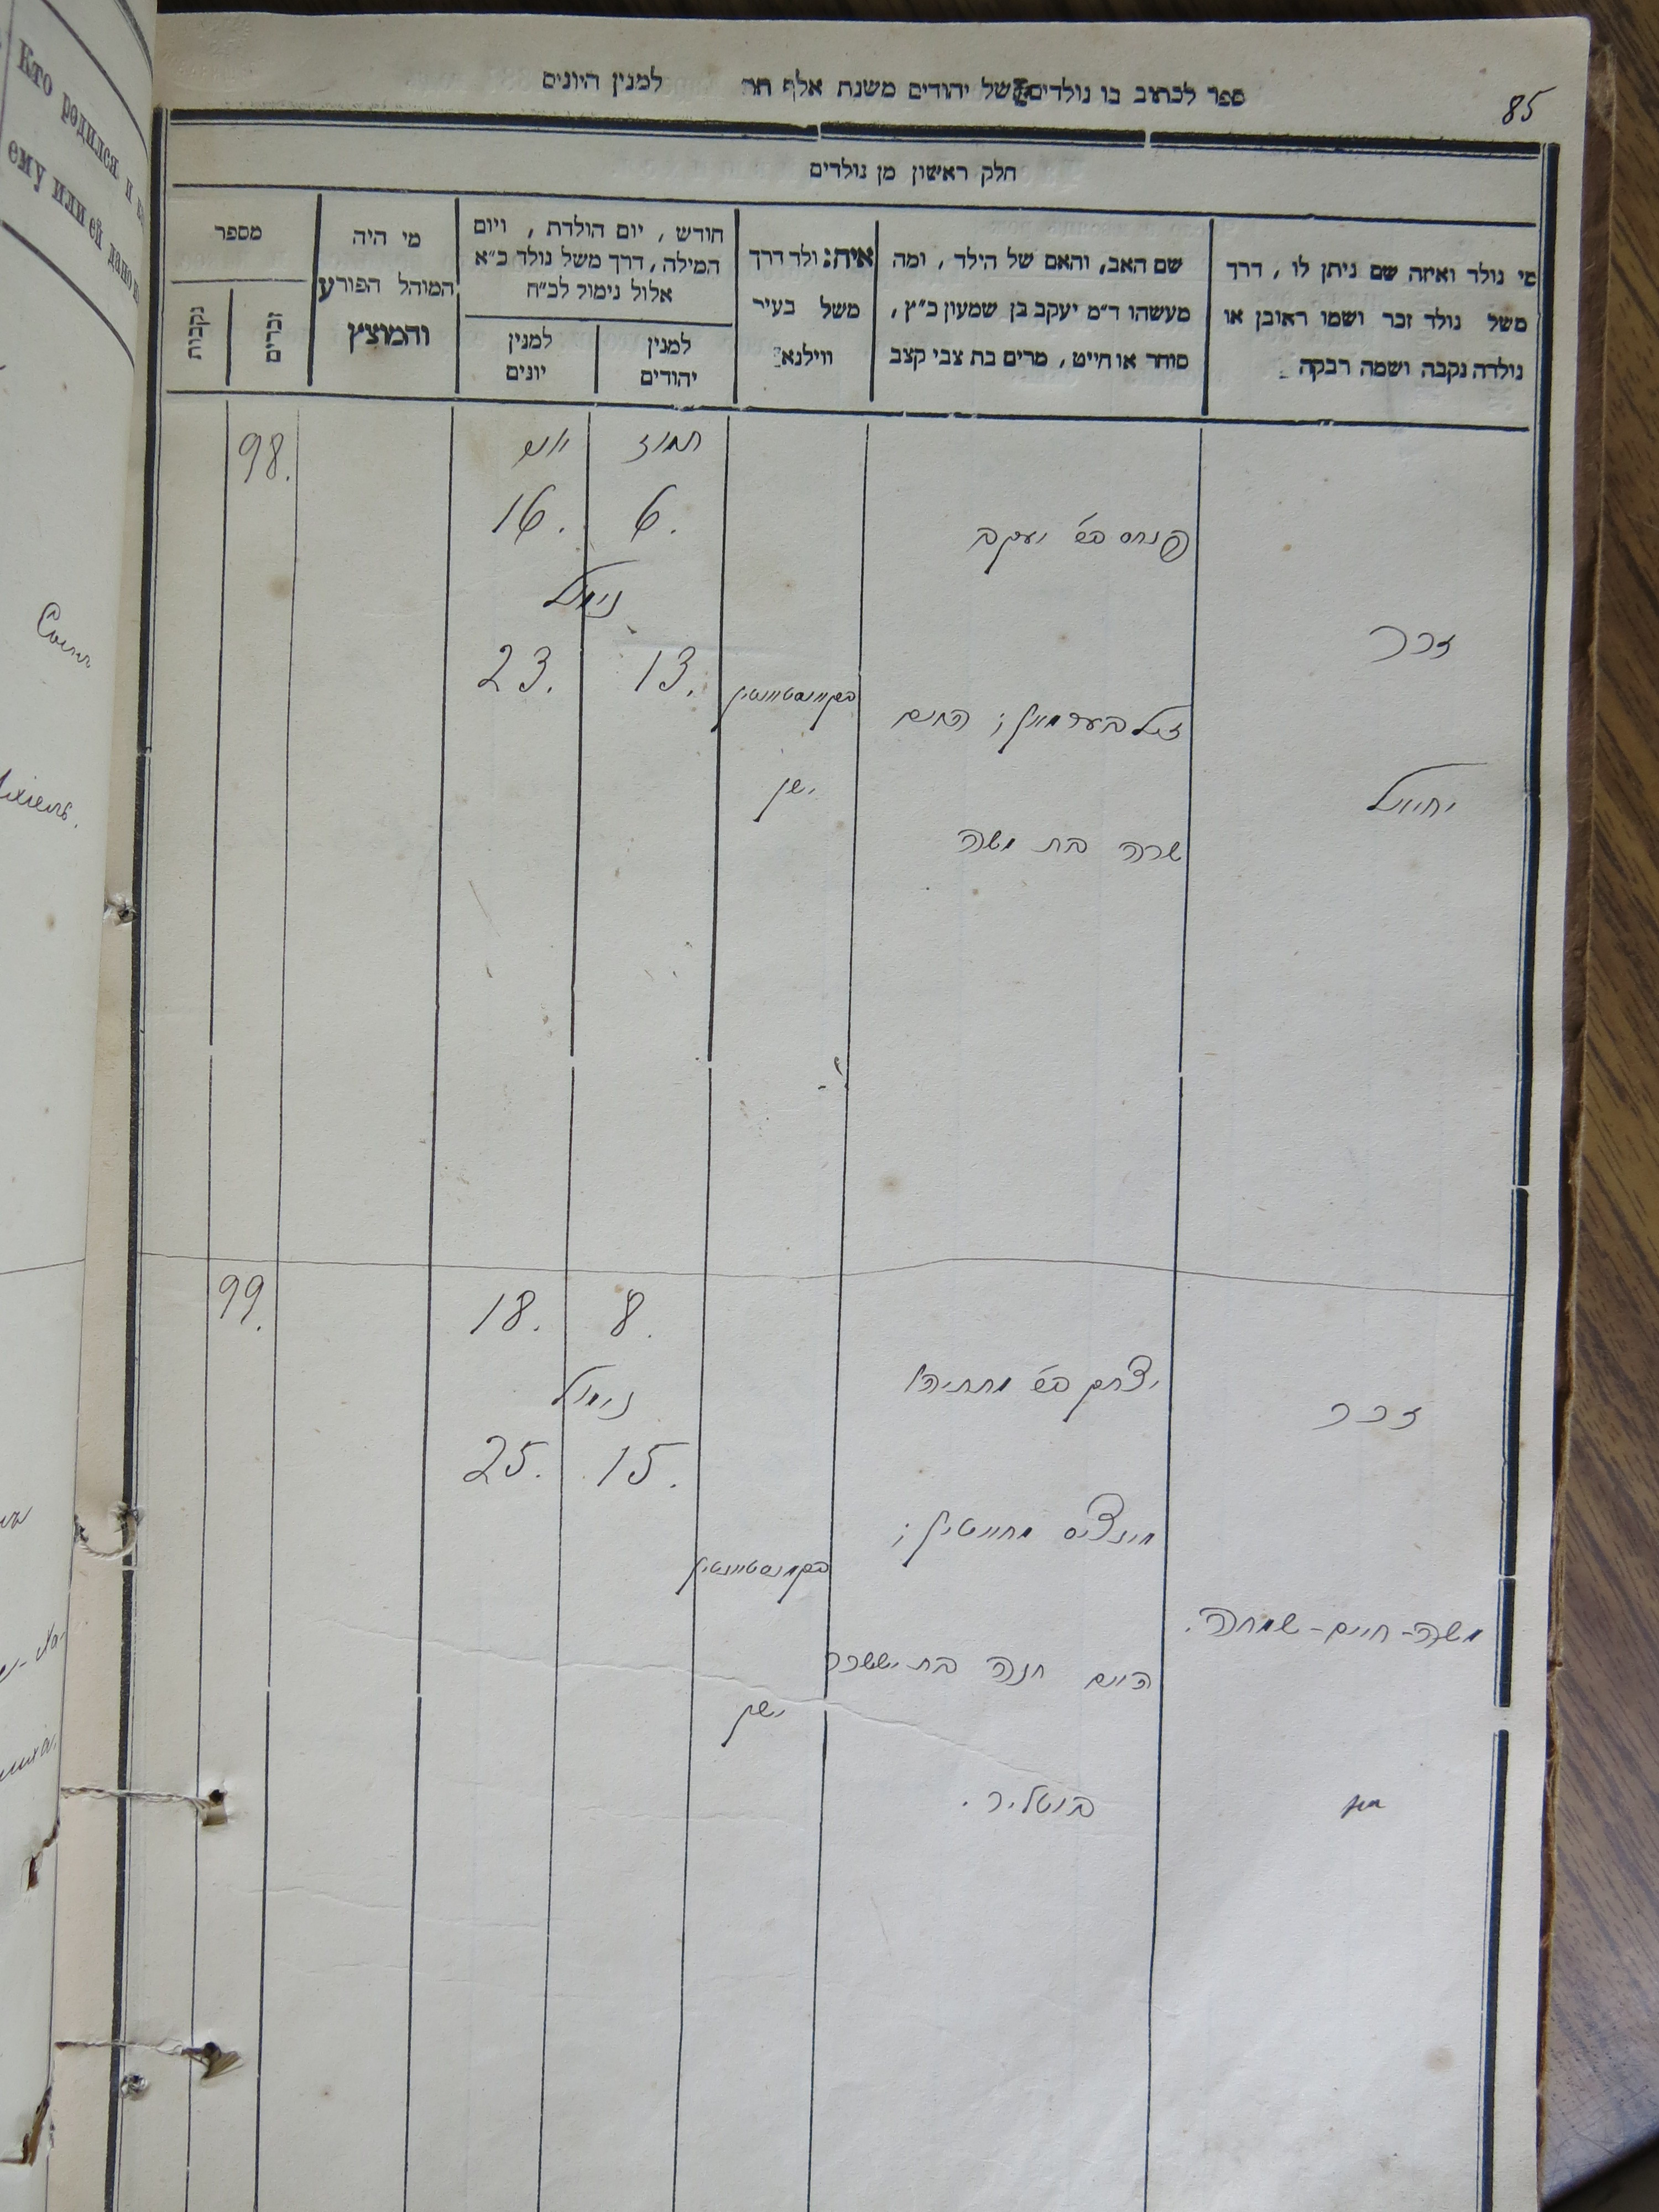 85
ספר לכתוב בו נולדים של יהודים משנת אלף תת למנין היונים
חלק ראשון מן נולדים
מי נולד ואיזה שם ניתן לו, דרך
משל נולד זכר ושמו ראובן או
נולדה נקבה ושמה רבקה
שם האב, והאם של הילד, ומה
מעשהו ד״מ יעקב בן שמעון כ״ץ,
סוחר או חייט, מרים בת צבי קצב
איה נולד דרך
משל בעיר
ווילנא
חודש, יום הולדת, ויום
המילה, דרך משל נולד כ״א
אלול נימול לכ״ח
למנין
יהודים
למנין
יונים
מי היה
המוהל הפורע
והמוצץ
מספר
זכרים
נקבות
98.
יוני
תמוז
16.
6.
פנחס בש׳ יעקב
נימול
זכר
23.
13.
בקיינסטיינטין
האם
ישן
יחיאל
שרה בת משה
99.
18.
8.
יצחק בש׳ מתתיהו
נימול
זכר
25.
15.
משה-חיים-שמחה.
האם חנה בת יששכר
ישן
בוטליר.
Кто родился и
ему или ей дано